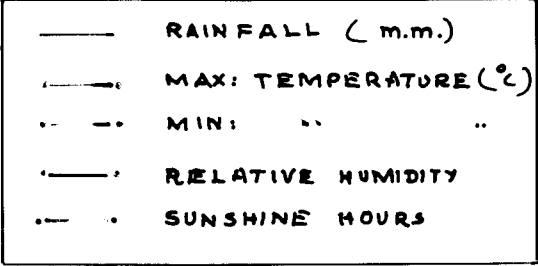 RAINFALL (m.m.)
MAX: TEMPERATURE (°C)
MIN: " "
RELATIVE HUMIDITY
SUNSHINE HOURS